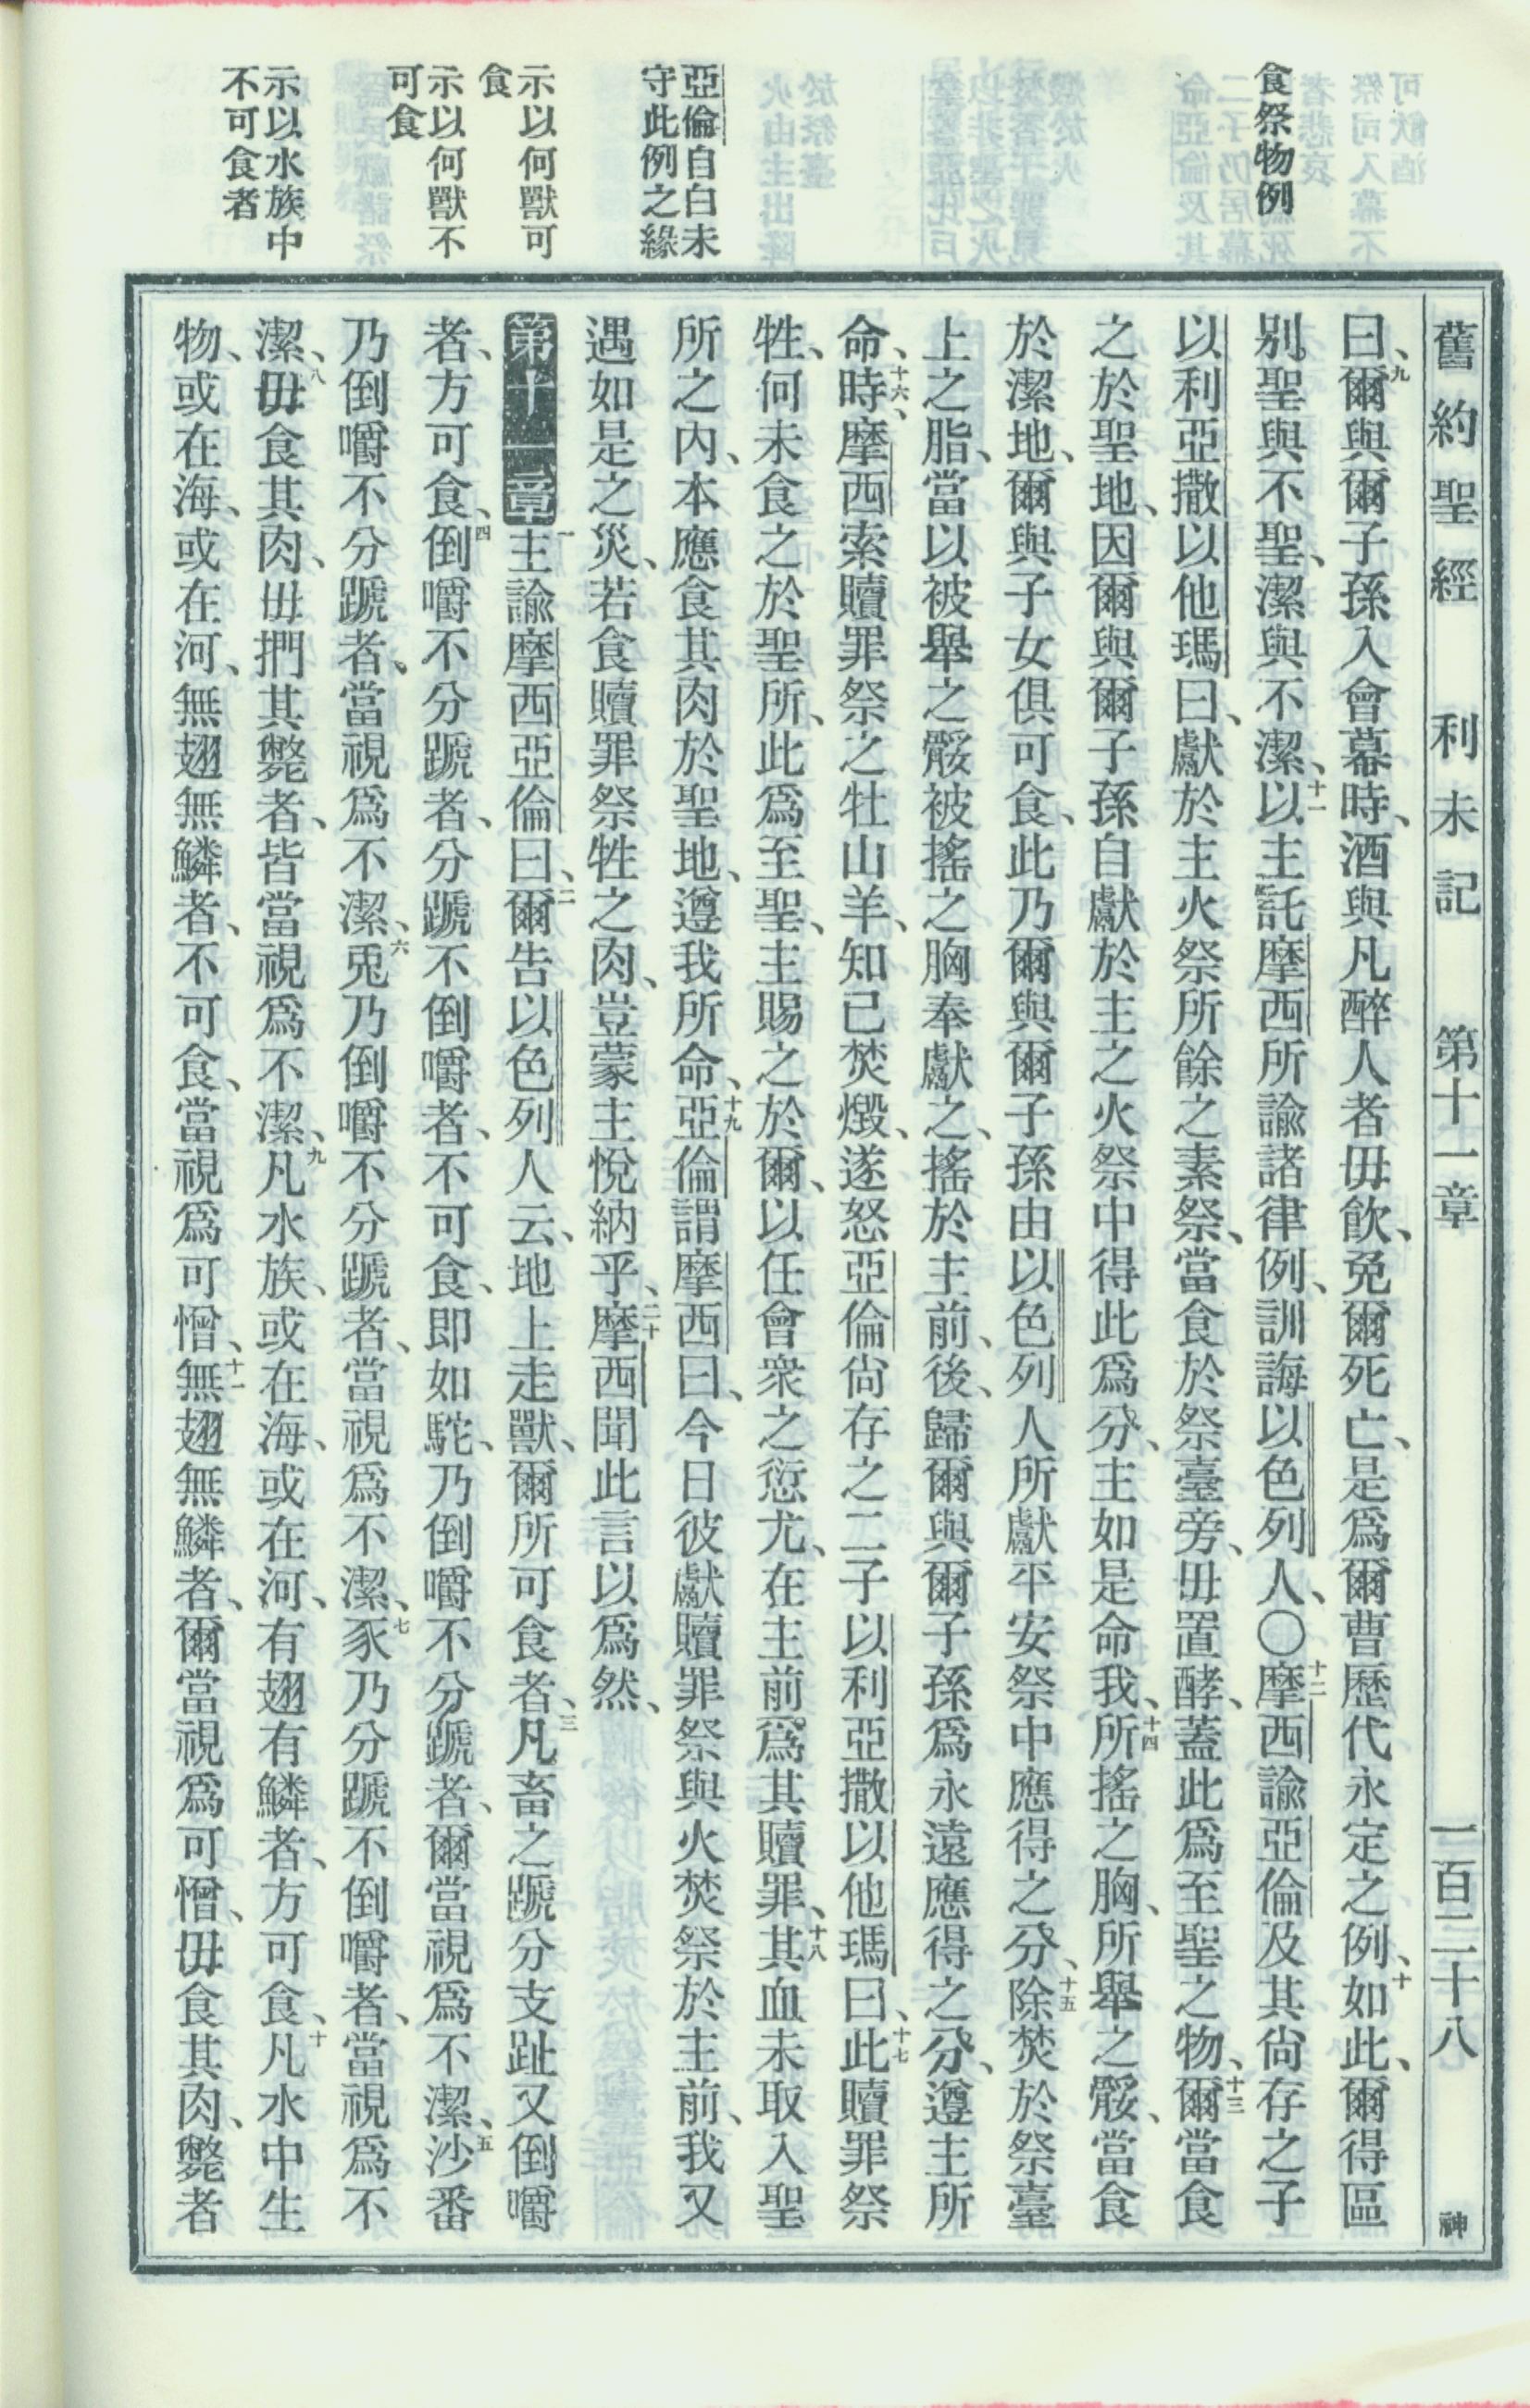 舊約聖經 利未記 第十一章 一百二十八 神
食祭物例
亞倫自白未
守此例之緣
示以何獸可
食
示以何獸不
可食
示以水族中
不可食者
曰、九爾與爾子孫入會幕時、酒與凡醉人者毋飲、免爾死亡、是爲爾曹歷代永定之例、十如此、爾得區
別聖與不聖、潔與不潔、十一以主託摩西所諭諸律例、訓誨以色列人、〇十二摩西諭亞倫及其尙存之子
以利亞撒以他瑪曰、獻於主火祭所餘之素祭、當食於祭臺旁、毋置酵、蓋此爲至聖之物、十三爾當食
之於聖地、因爾與爾子孫自獻於主之火祭中得此爲分、主如是命我、十四所搖之胸、所舉之骽、當食
於潔地、爾與子女俱可食、此乃爾與爾子孫由以色列人所獻平安祭中應得之分、十五除焚於祭臺
上之脂、當以被舉之骽被搖之胸奉獻之、搖於主前、後、歸爾與爾子孫爲永遠應得之分、遵主所
命、十六時、摩西索贖罪祭之牡山羊、知已焚燬、遂怒亞倫尙存之二子以利亞撒以他瑪曰、十七此贖罪祭
牲、何未食之於聖所、此爲至聖、主賜之於爾、以任會衆之愆尤、在主前爲其贖罪、十八其血未取入聖
所之內、本應食其肉於聖地、遵我所命、十九亞倫謂摩西曰、今日彼獻贖罪祭與火焚祭於主前、我又
遇如是之災、若食贖罪祭牲之肉、豈蒙主悅納乎、二十摩西聞此言以爲然、
第十一章 一主諭摩西亞倫曰、二爾告以色列人云、地上走獸、爾所可食者、三凡畜之蹏分支趾又倒嚼
者、方可食、四倒嚼不分蹏者、分蹏不倒嚼者、不可食、即如駝、乃倒嚼不分蹏者、爾當視爲不潔、五沙番
乃倒嚼不分蹏者、當視爲不潔、六兎乃倒嚼不分蹏者、當視爲不潔、七豕乃分蹏不倒嚼者、當視爲不
潔、八毋食其肉、毋捫其斃者、皆當視爲不潔、九凡水族、或在海、或在河、有翅有鱗者、方可食、十凡水中生
物、或在海、或在河、無翅無鱗者、不可食、當視爲可憎、十一無翅無鱗者、爾當視爲可憎、毋食其肉、斃者